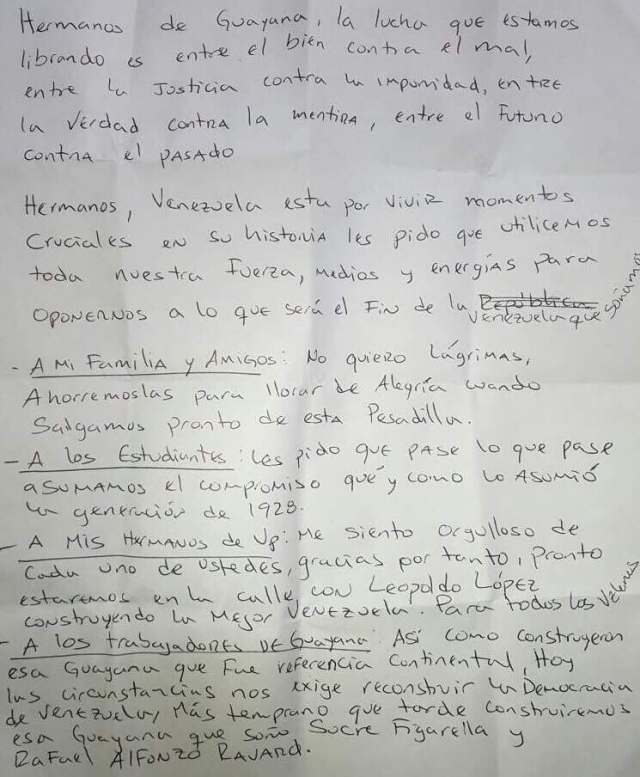 Hermanos de Guayana, la lucha que estamos
librando es entre el bien contra el mal,
entre la Justicia contra la impunidad, entre
la verdad contra la mentira, entre el Futuro
contra el pasado
Hermanos, Venezuela esta por vivir momentos
Cruciales en su historia les pido que utilicemos
toda nuestra Fuerza, medios y energías para
oponernos a lo que será el Fin de la República
Venezuela que soñamos
- A Mi Familia y Amigos: No quiero Lágrimas,
Ahorremoslas para llorar de Alegría cuando
Salgamos pronto de esta Pesadilla.
- A los Estudiantes: Les pido que pase lo que pase
asumamos el compromiso que y como lo asumió
la generación de 1928.
- A Mis Hermanos de Vp: Me siento orgulloso de
Cada uno de ustedes, gracias por tanto, Pronto
estaremos en la calle con Leopoldo López
construyendo la Mejor Venezuela. Para todos los
- A los trabajadores de Guayana: Así como construyeron
esa Guayana que Fue referencia Continental, Hoy
las circunstancias nos exige reconstruir la Democracia
de Venezuela, Más temprano que tarde construiremos
esa Guayana que soño Sucre Figarella y
Rafael Alfonzo Ravard.